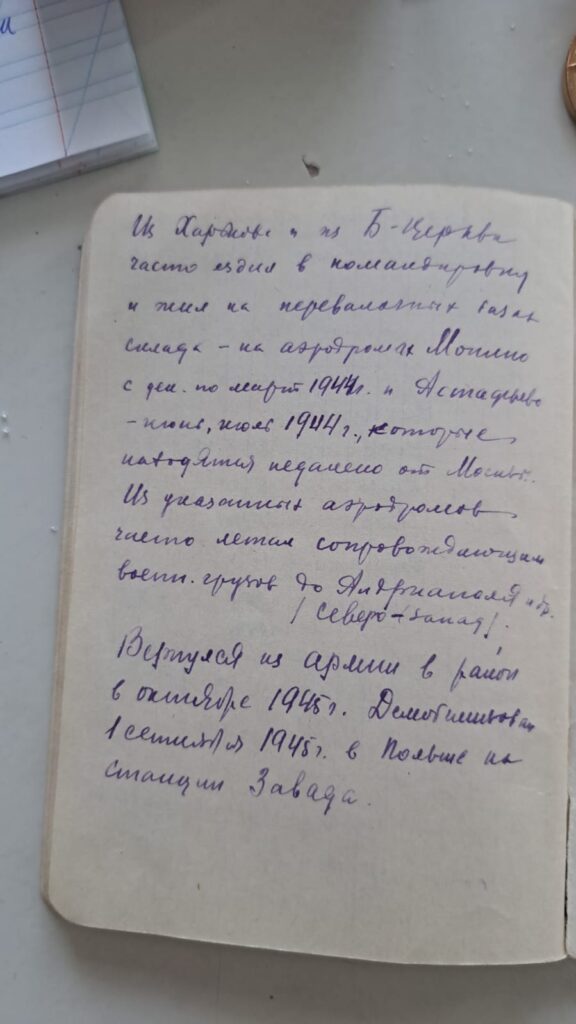 Из Харькова и из Б-Церкви
часто ездил в командировку
и жил на перевалочных базах
склада - на аэродромах Монино
с дек. по март 1944 г. и Астафьево
- июнь, июль 1944 г., которые
находятся недалеко от Москвы.
Из указанных аэродромов
часто летал сопровождающим
воен. грузов до Андриаполя и др.
/ Северо-Запад/.
Вернулся из армии в район
в октябре 1945 г. Демобилизован
1 сентября 1945 г. в Польше на
станции Завада.